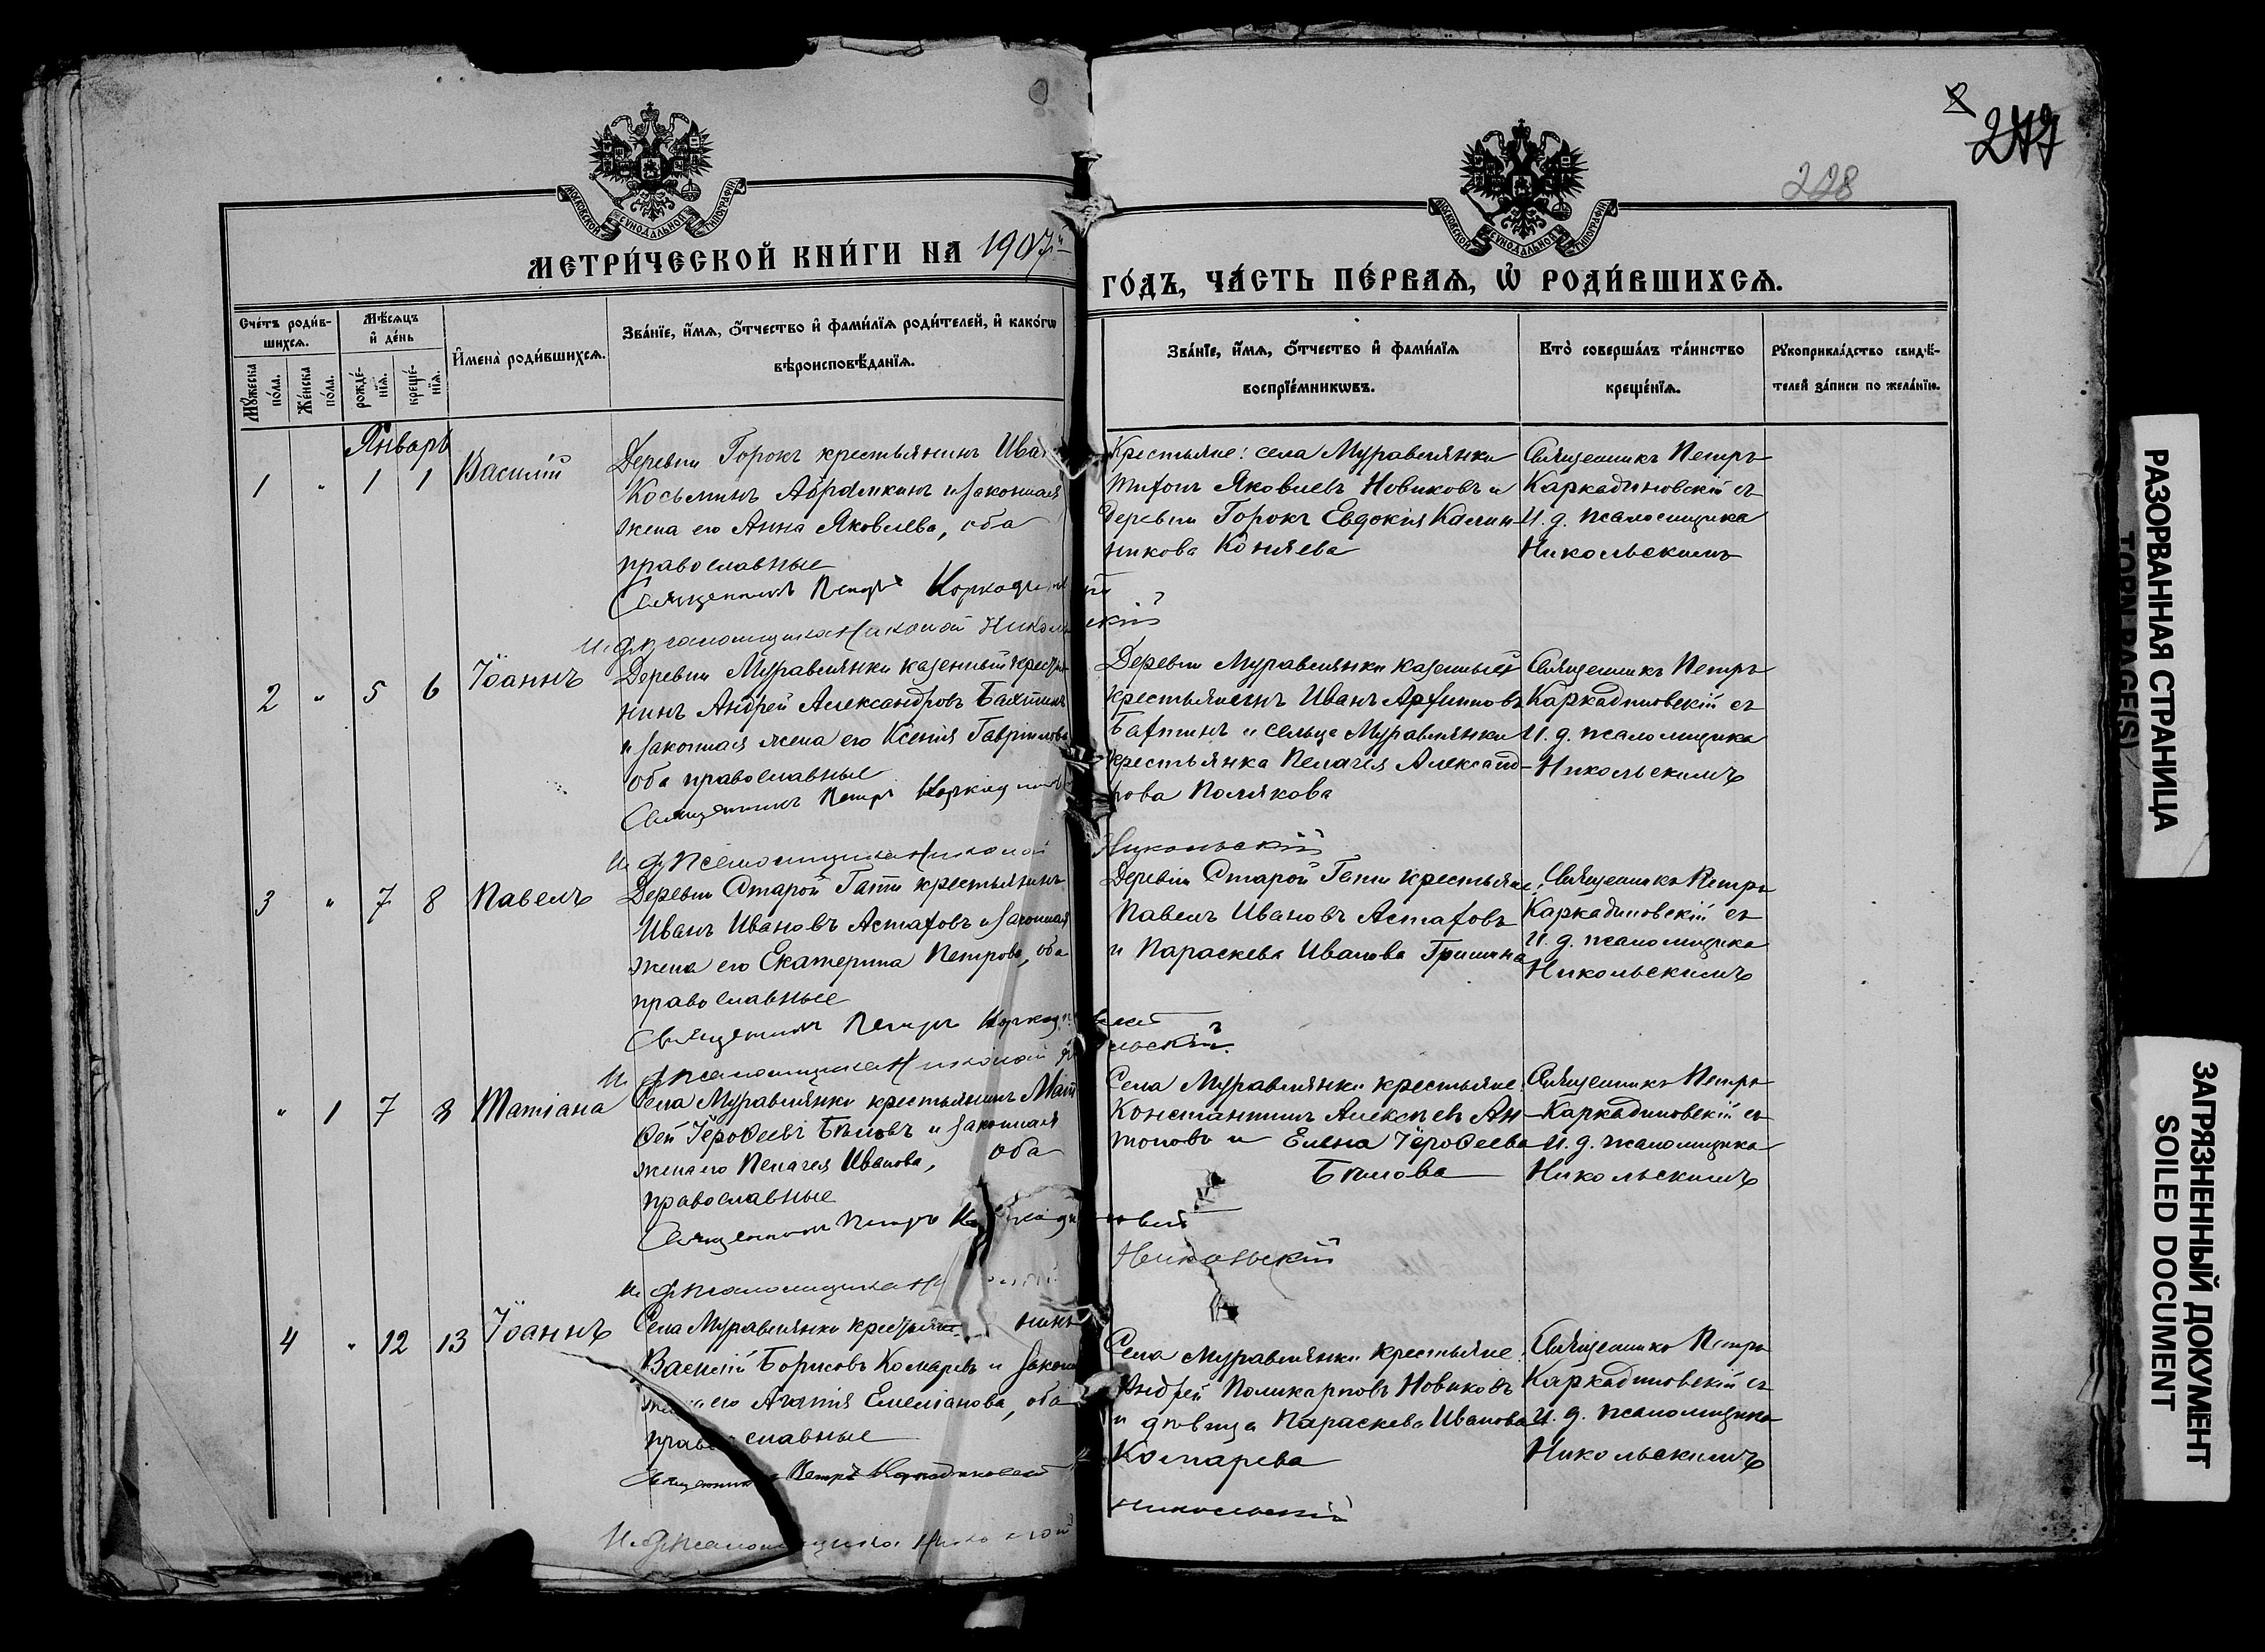 228
МОСКОВСКОЙ СѴНОДАЛЬНОЙ ТИПОГРАФІИ
МОСКОВСКОЙ СѴНОДАЛЬНОЙ ТИПОГРАФІИ
МЕТРИ́ЧЕСКОЙ КНИ́ГИ НА 1907й
ГО́ДЪ, ЧА́СТЬ ПЕ́РВАѦ, Ѡ҆ РОДИ́ВШИХСѦ.
Сче́тъ роди́в-
шихсѧ.
Мꙋ́жеска по́ла.
Же́нска по́ла.
Мѣ́сѧцъ
и҆ де́нь
рожде́-
нїѧ.
креще́-
нїѧ.
И҆мена̀ роди́вшихсѧ.
Зва́нїе, и҆́мѧ, ѻ҆́тчество и҆ фами́лїѧ роди́телей, и҆ како́гѡ
вѣроисповѣ́данїѧ.
Зва́нїе, и҆́мѧ, ѻ҆́тчество и҆ фами́лїѧ
воспрїе́мникѡвъ.
Кто̀ соверша́лъ та́инство
креще́нїѧ.
Рꙋкоприкла́дство свидѣ́-
телей за́писи по жела́нїю.
Январь
1 " 1 1 Василій
Деревни Горокъ крестьянинъ Ива
Косьминъ Абрамкинъ и законная
жена его Анна Яковлева, оба
православные
Священникъ Петръ
И. д. псаломщика Николай Никольскій
Крестьяне: села Муравлянки
Тихонъ Яковлевъ Новиковъ и
деревни Горокъ Евдокія Калин-
никова Коняева
Священникъ Петръ
Каркадиновскій съ
И. д. псаломщика
Никольскимъ
2 " 5 6 Іоаннъ
Деревни Муравлянки казенный крестья
нинъ Андрей Александровъ Бахтинъ
и законная жена его Ксенія Гавриилова
оба православные
Священникъ Петръ
И. д. псаломщика Николай Никольскій
Деревни Муравлянки казенный
крестьянинъ Иванъ Архиповъ
Бахтинъ и сельца Муравлянки
крестьянка Пелагея Александ-
рова Полякова
Священникъ Петръ
Каркадиновскій съ
И. д. псаломщика
Никольскимъ
3 " 7 8 Павелъ
Деревни Старой Гати крестьянинъ
Иванъ Ивановъ Астаховъ и законная
жена его Екатерина Петрова, оба
православные
Священникъ Петръ
И. д. псаломщика Николай
Деревни Старой Гати крестьяне:
Павелъ Ивановъ Астаховъ
и Параскева Иванова Гришина
Священникъ Петръ
Каркадиновскій съ
И. д. псаломщика
Никольскимъ
" 1 7 8 Татіана
Села Муравлянки крестьянинъ Мат
ѳей Іероѳеевъ Бѣловъ и законная
жена его Пелагея Иванова, оба
православные
Священникъ Петръ
И. д. псаломщика Никольскій
Села Муравлянки крестьяне:
Константинъ Алексѣевъ Ан-
тоновъ и Елена Іероѳеева
Бѣлова
Священникъ Петръ
Каркадиновскій съ
И. д. псаломщика
Никольскимъ
4 " 12 13 Іоаннъ
Села Муравлянки крестьянинъ
Василій Борисовъ Комаревъ и закон
жена его Агапія Емеліанова, оба
православные
Священникъ Петръ Каркадиновскій
И. д. псаломщика Николай Никольскій
Села Муравлянки крестьяне:
Андрей Поликарповъ Новиковъ
и дѣвица Параскева Иванова
Комарева
Священникъ Петръ
Каркадиновскій съ
И. д. псаломщика
Никольскимъ
РАЗОРВАННАЯ СТРАНИЦА
TORN PAGE(S)
ЗАГРЯЗНЕННЫЙ ДОКУМЕНТ
SOILED DOCUMENT